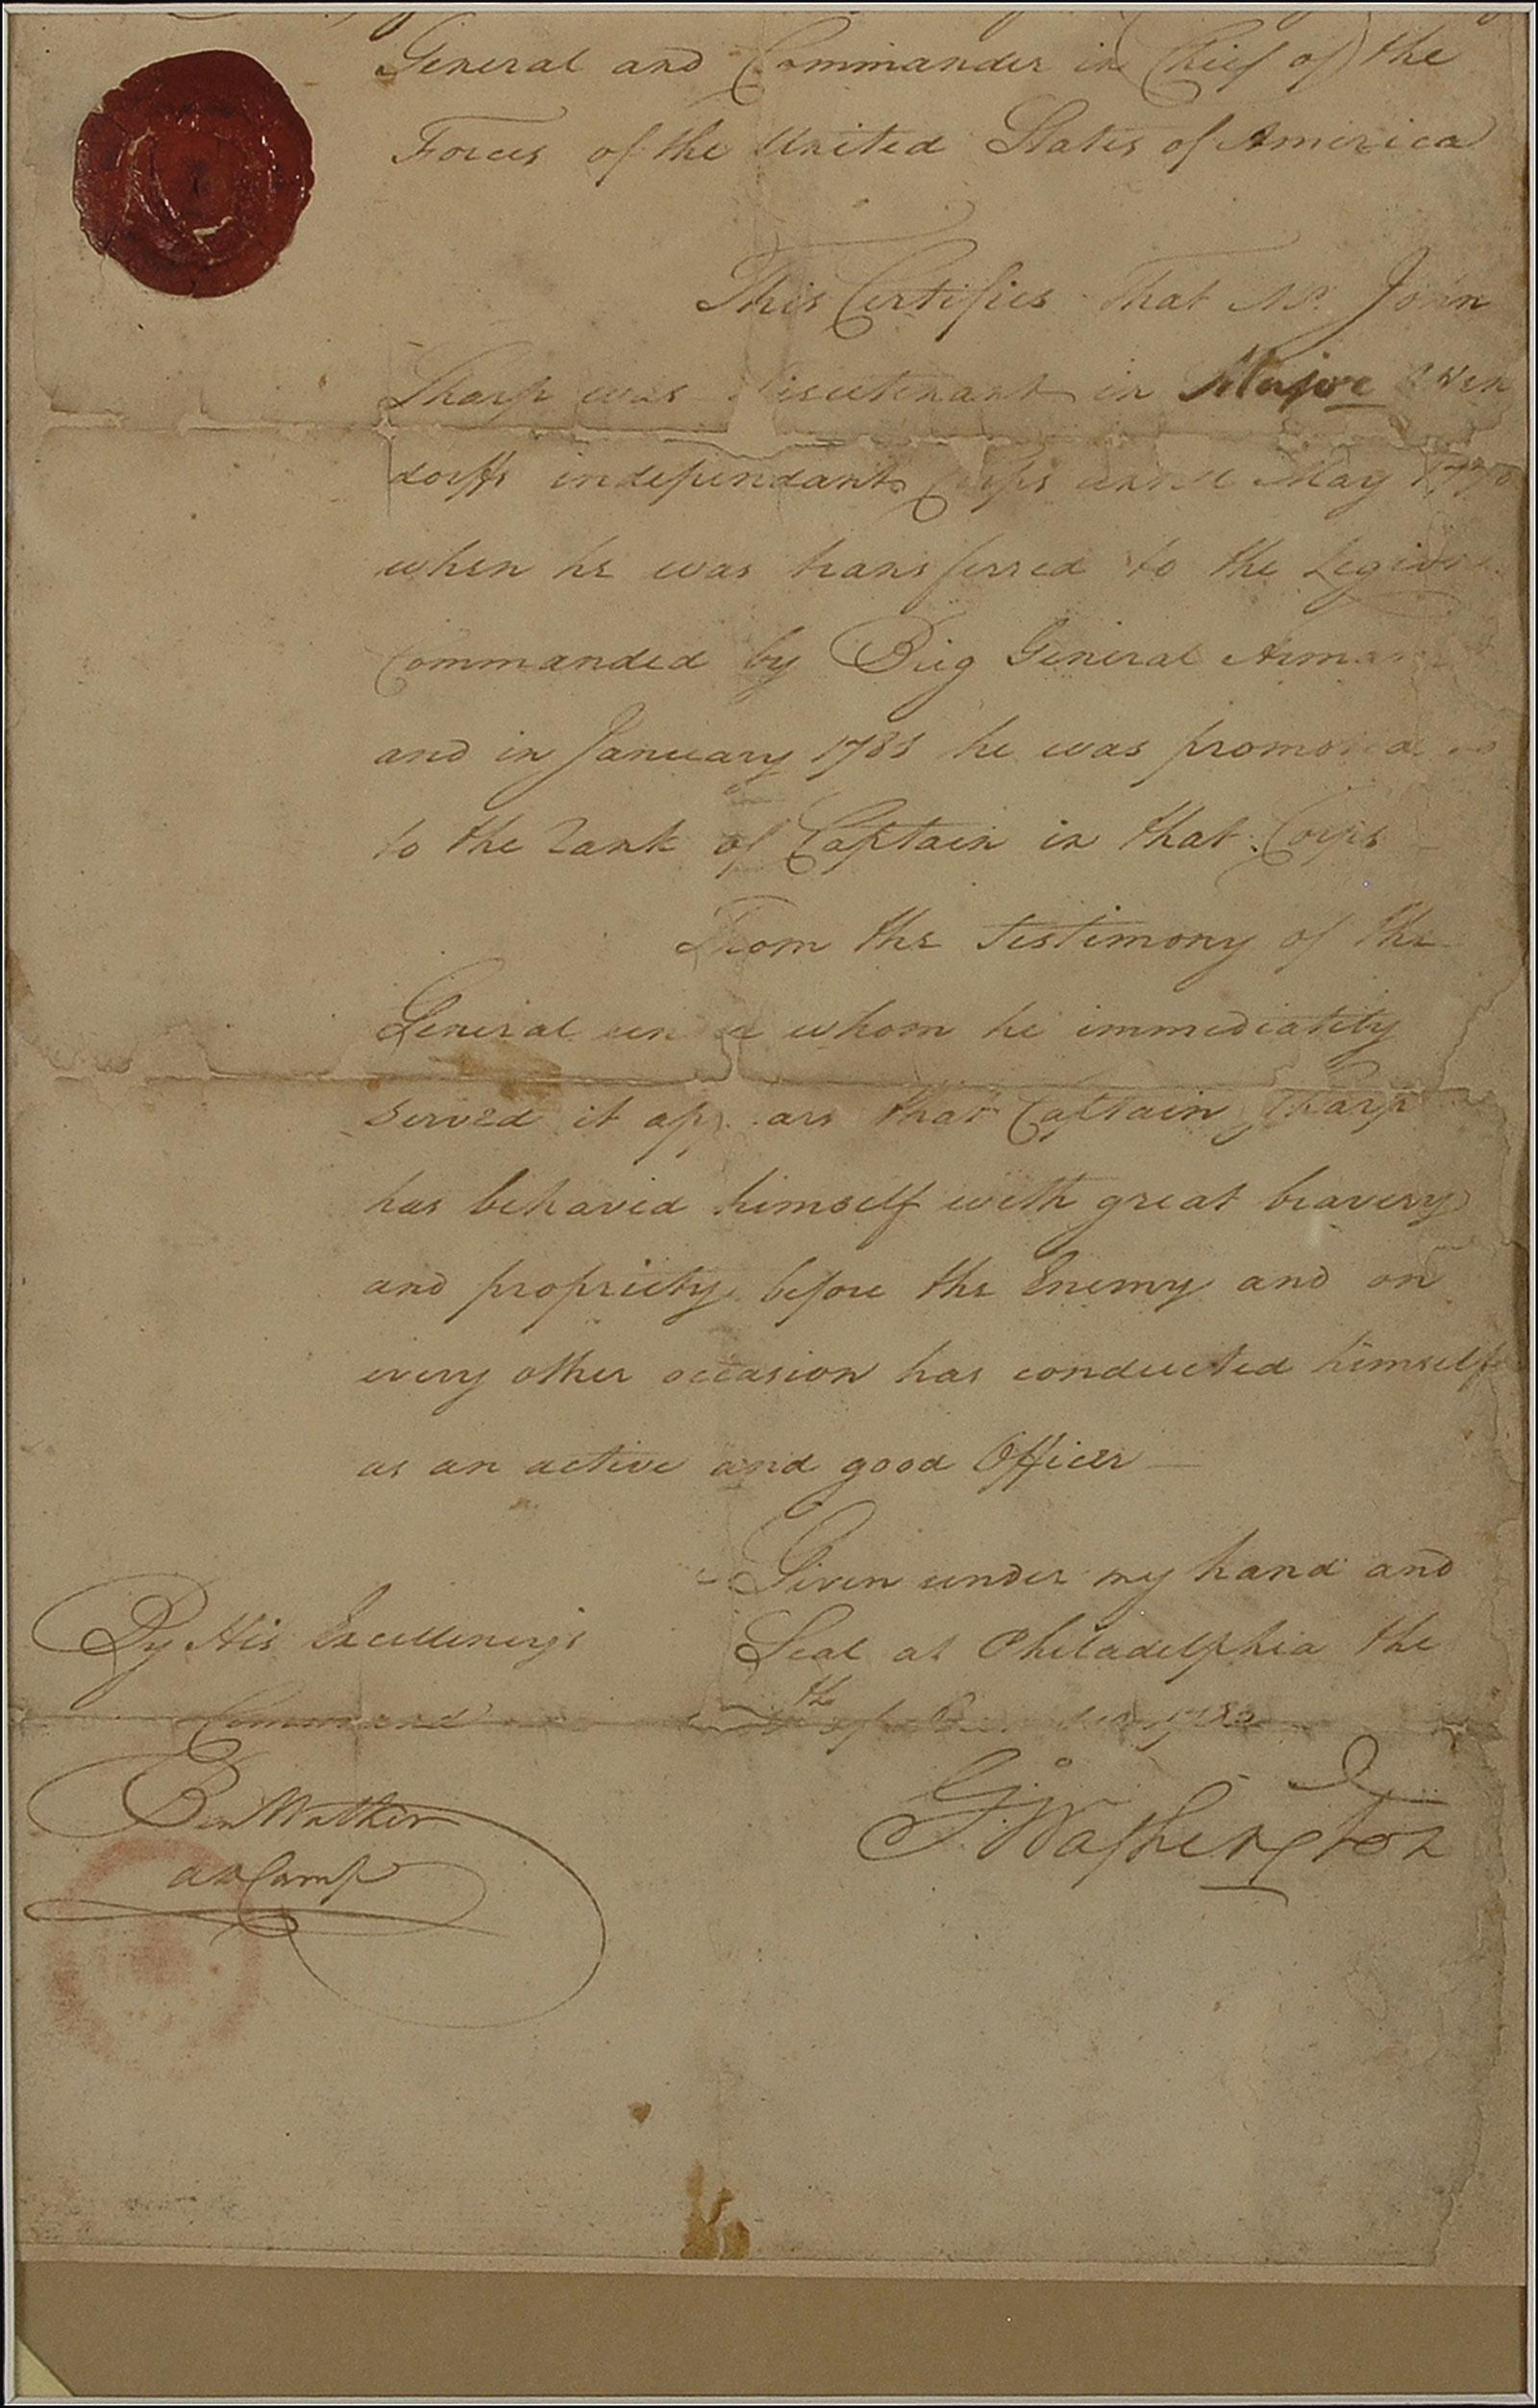 General and Commander in Chief of the
Forces of the United States of America
This Certifies that Mr. John
Sharp was Lieutenant in Major
dorffs independant Corps untill May
when he was transferred to the Legion
Commanded by Brig General
and in January he was promoted
to the Rank of Captain in that Corps
From the testimony of the
General under whom he immediately
served it appears that Captain Sharp
has behaved himself with great bravery
and propriety before the Enemy and on
every other occasion has conducted himself
as an active and good Officer
Given under my hand and
Seal at Philadelphia the
th of 1783
G:Washington
By His Excellency's
Command
Ben Walker
ADCamp